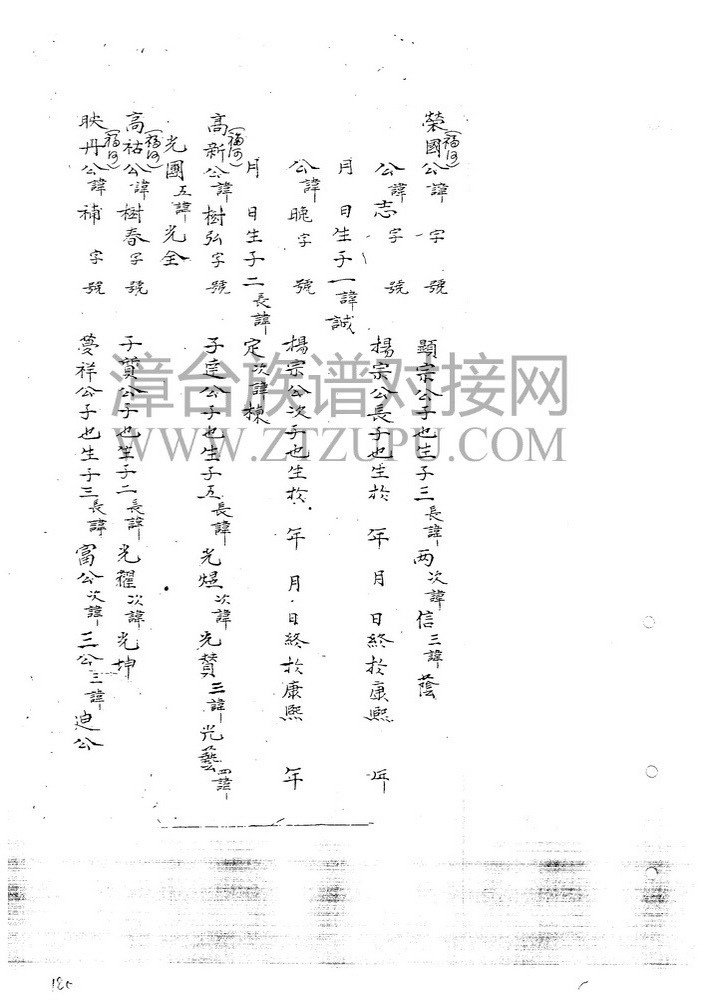 榮國(福河)公諱 字 號 顯宗公子也生子三長諱兩次諱信三諱蔭
公諱志 字 號 楊宗公長子也生於 年 月 日終於康熙 年
月 日生子一諱誠
公諱 字 號 楊宗公次子也生於 年 月 日終於康熙 年
月 日生子二長諱定次諱棟
高新(福河)公諱樹弘字 號 子達公子也生子五長諱光焜次諱光贊三諱光藝四諱
光國五諱光全
高祜(福河)公諱樹春字 號 子質公子也生子二長諱光耀次諱光坤
映丹(福河)公諱補 字 號 夢祥公子也生子三長諱富公次諱三公三諱迪公
漳台族谱对接网
WWW.ZTZUPU.COM